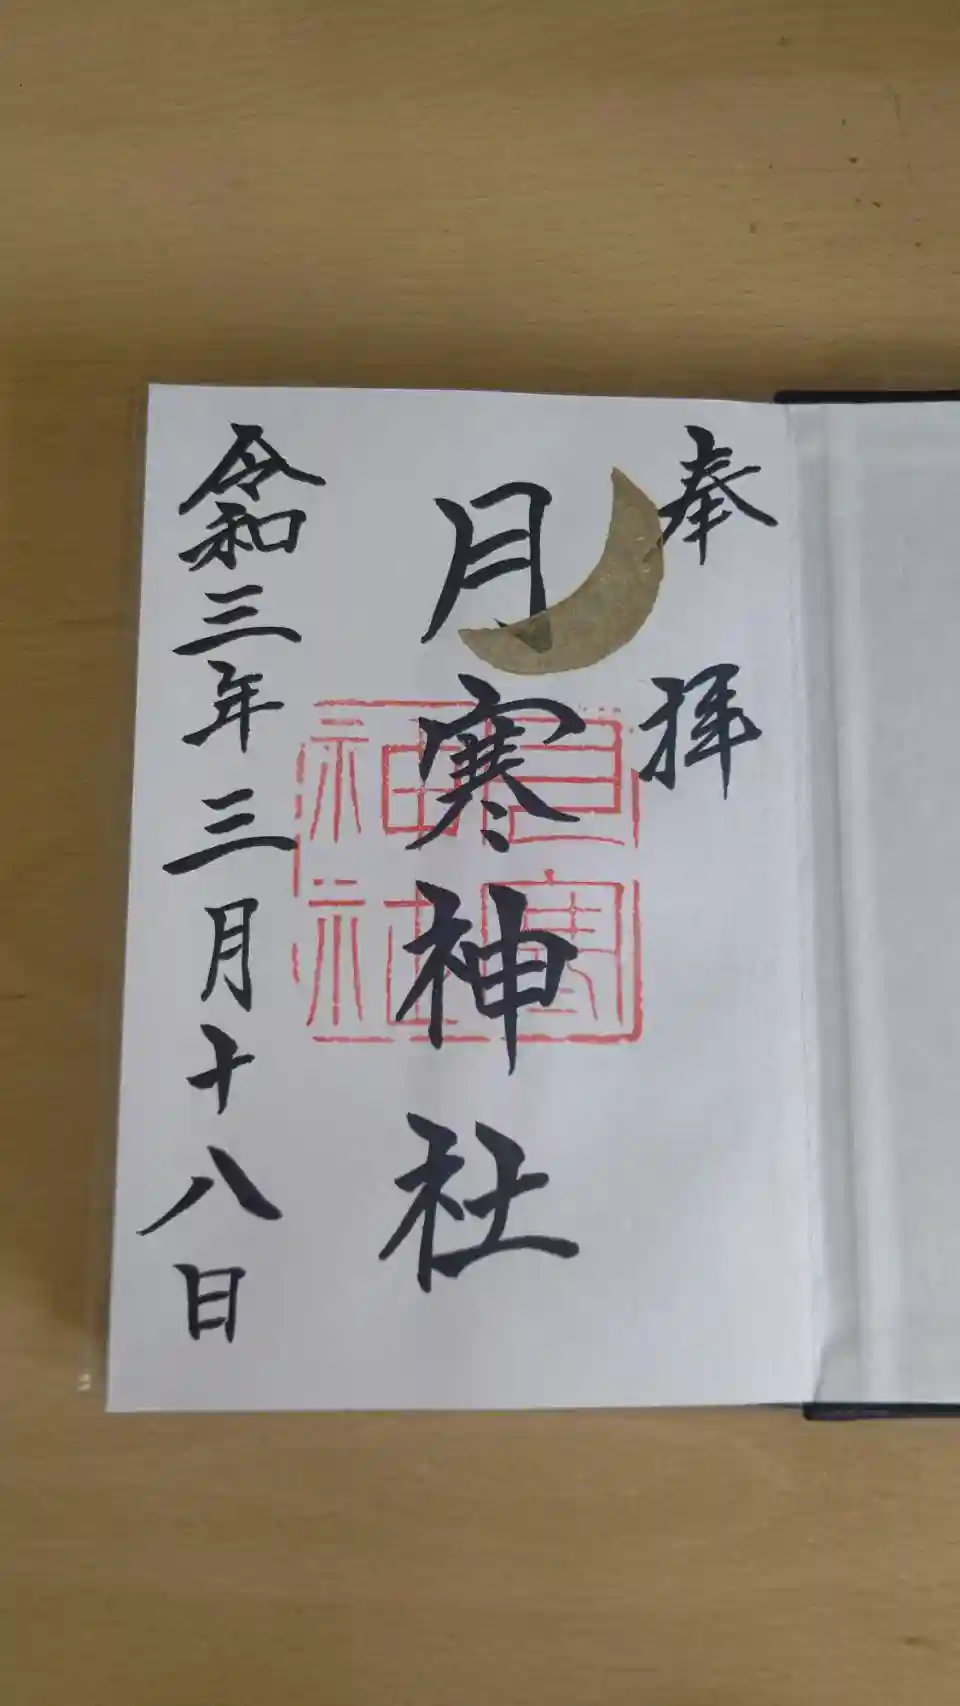 奉拝
月寒神社
令和三年三月十八日
月寒神社